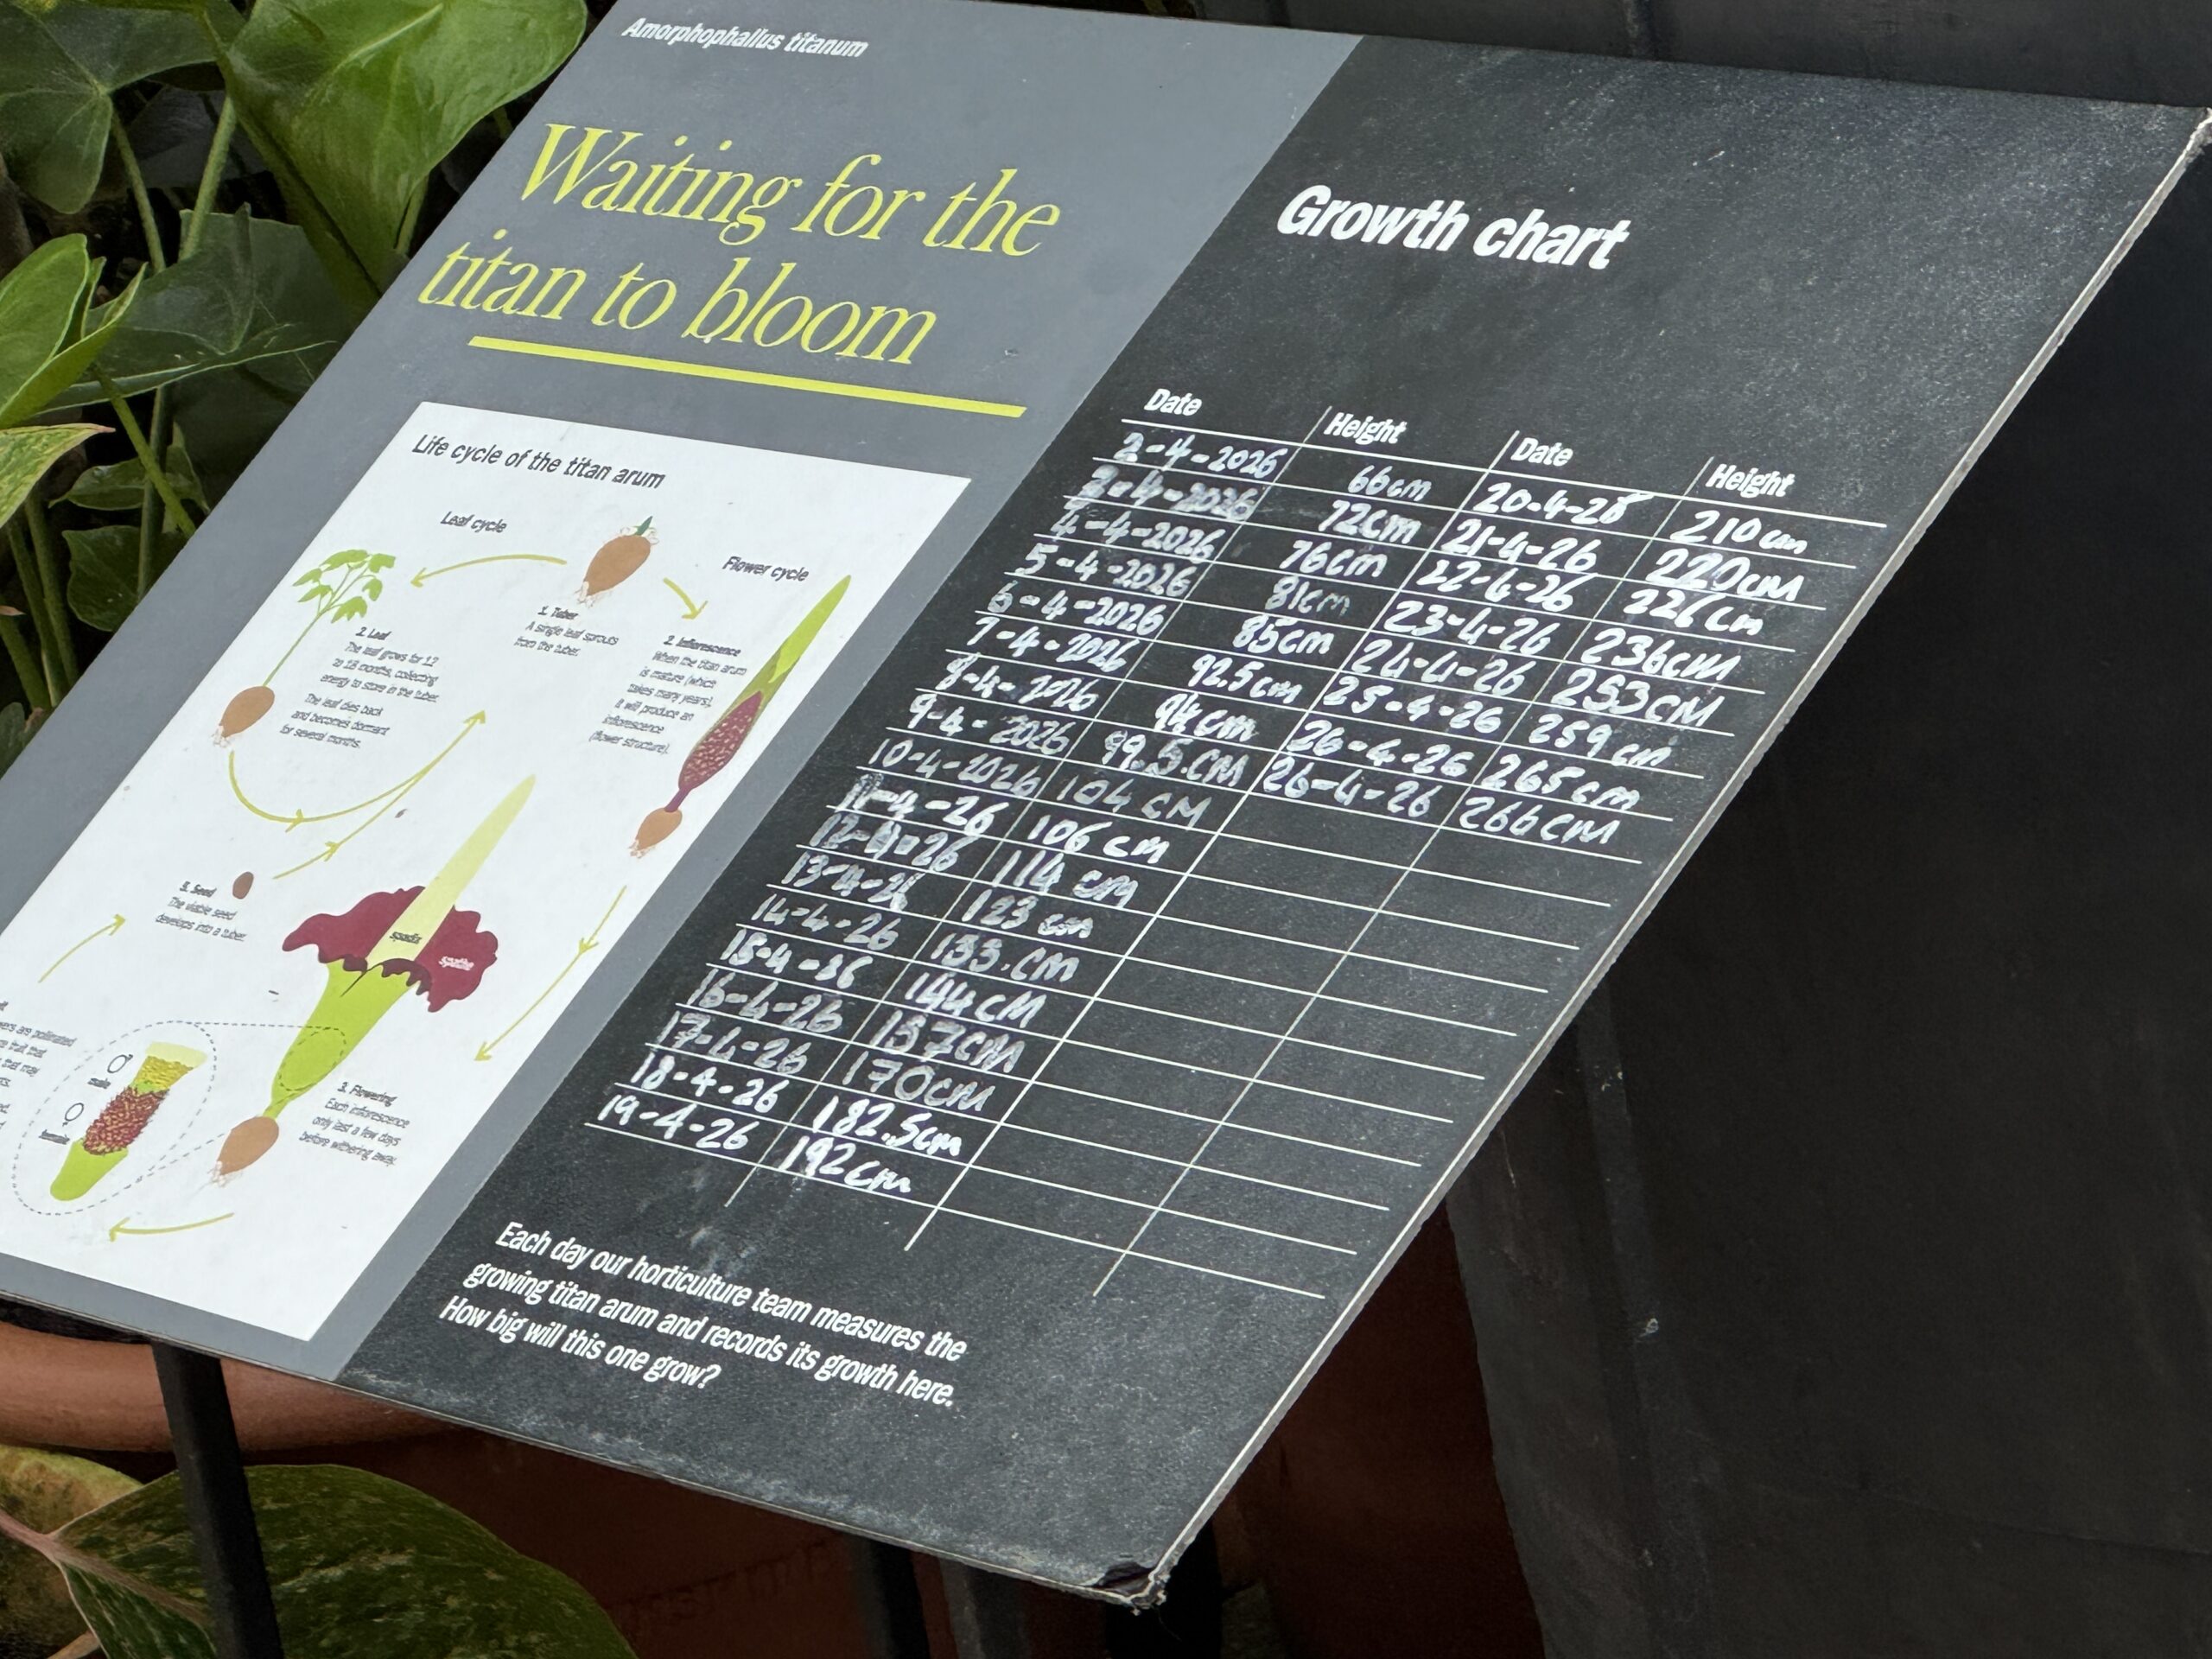 Amorphophallus titanum
Waiting for the
titan to bloom
Life cycle of the titan arum
Leaf cycle
Flower cycle
1. Tuber
A single leaf sprouts
from the tuber.
2. Leaf
The leaf grows for 12
to 18 months, collecting
energy to store in the tuber.
The leaf dies back
and becomes dormant
for several months.
2. Inflorescence
When the titan arum
is mature (which
takes many years),
it will produce an
inflorescence
(flower structure).
5. Seed
The viable seed
develops into a tuber.
spadix
spathe
3. Flowering
Each inflorescence
only last a few days
before withering away.
male
female
are pollinated
fruit that
that may
Growth chart
Date Height Date Height
2-4-2026 66cm 20-4-26 210cm
3-4-2026 72cm 21-4-26 220cm
4-4-2026 76cm 22-4-26 226cm
5-4-2026 81cm 23-4-26 236cm
6-4-2026 85cm 24-4-26 253cm
7-4-2026 92.5cm 25-4-26 259cm
8-4-2026 94cm 26-4-26 265cm
9-4-2026 99.5.cm 26-4-26 266cm
10-4-2026 104cm
11-4-26 106cm
12-4-26 114cm
13-4-26 123cm
14-4-26 133.cm
15-4-26 144cm
16-4-26 157cm
17-4-26 170cm
18-4-26 182.5cm
19-4-26 192cm
Each day our horticulture team measures the
growing titan arum and records its growth here.
How big will this one grow?